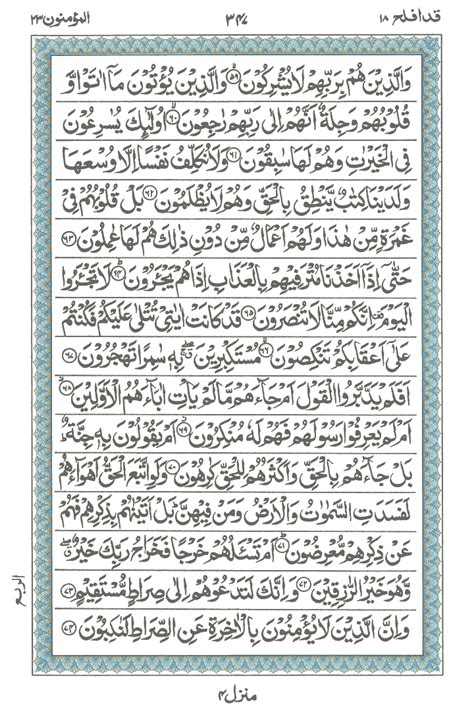 قد افلح ١٨ ٣٤٧ المؤمنون ٢٣
وَالَّذِيۡنَ هُمۡ بِرَبِّهِمۡ لَا يُشۡرِكُوۡنَ ۙ‏﴿۵۹﴾ وَالَّذِيۡنَ يُؤۡتُوۡنَ مَاۤ اٰتَوْا وَّ
قُلُوۡبُهُمۡ وَجِلَةٌ اَنَّهُمۡ اِلٰى رَبِّهِمۡ رٰجِعُوۡنَ ۙ‏﴿۶۰﴾ اُولٰٓٮِٕكَ يُسٰرِعُوۡنَ
فِى الۡخَيۡـرٰتِ وَهُمۡ لَهَا سٰبِقُوۡنَ‏﴿۶۱﴾ وَلَا نُـكَلِّفُ نَفۡسًا اِلَّا وُسۡعَهَا
وَلَدَيۡنَا كِتٰبٌ يَّـنۡطِقُ بِالۡحَـقِّ وَهُمۡ لَا يُظۡلَمُوۡنَ‏﴿۶۲﴾ بَلۡ قُلُوۡبُهُمۡ فِىۡ
غَمۡرَةٍ مِّنۡ هٰذَا وَلَهُمۡ اَعۡمَالٌ مِّنۡ دُوۡنِ ذٰلِكَ هُمۡ لَهَا عٰمِلُوۡنَ‏﴿۶۳﴾
حَتّٰٓى اِذَاۤ اَخَذۡنَا مُتۡـرَفِيۡهِمۡ بِالۡعَذَابِ اِذَا هُمۡ يَجْئَرُوۡنَؕ‏﴿۶۴﴾ لَا تَجْئَرُوا
الۡيَوۡمَ‌ اِنَّكُمۡ مِّنَّا لَا تُنۡصَرُوۡنَ‏﴿۶۵﴾ قَدۡ كَانَتۡ اٰيٰتِىۡ تُتۡلٰى عَلَيۡكُمۡ فَـكُنۡتُمۡ
عَلٰٓى اَعۡقَابِكُمۡ تَنۡكِصُوۡنَۙ‏﴿۶۶﴾ مُسۡتَكۡبِرِيۡنَ ‌ۖ بِهٖ سٰمِرًا تَهۡجُرُوۡنَ‏﴿۶۷﴾
اَفَلَمۡ يَدَّبَّرُوا الۡقَوۡلَ اَمۡ جَآءَهُمۡ مَّا لَمۡ يَاۡتِ اٰبَآءَهُمُ الۡاَوَّلِيۡنَ‏﴿۶۸﴾
اَمۡ لَمۡ يَعۡرِفُوۡا رَسُوۡلَهُمۡ فَهُمۡ لَهٗ مُنۡكِرُوۡنَ‏﴿۶۹﴾ اَمۡ يَقُوۡلُوۡنَ بِهٖ جِنَّةٌ ؕ
بَلۡ جَآءَهُمۡ بِالۡحَـقِّ وَاَكۡثَرُهُمۡ لِلۡحَقِّ كٰرِهُوۡنَ‏﴿۷۰﴾ وَلَوِ اتَّبَعَ الۡحَـقُّ اَهۡوَآءَهُمۡ
لَفَسَدَتِ السَّمٰوٰتُ وَالۡاَرۡضُ وَمَنۡ فِيۡهِنَّ‌ؕ بَلۡ اَتَيۡنٰهُمۡ بِذِكۡرِهِمۡ فَهُمۡ
عَنۡ ذِكۡرِهِمۡ مُّعۡرِضُوۡنَؕ‏﴿۷۱﴾ اَمۡ تَسۡـَٔـلُهُمۡ خَرۡجًا فَخَرَاجُ رَبِّكَ خَيۡرٌ‌ۖ
وَّهُوَ خَيۡرُ الرّٰزِقِيۡنَ‏﴿۷۲﴾ وَاِنَّكَ لَـتَدۡعُوۡهُمۡ اِلٰى صِرَاطٍ مُّسۡتَقِيۡمٍ‏﴿۷۳﴾
وَاِنَّ الَّذِيۡنَ لَا يُؤۡمِنُوۡنَ بِالۡاٰخِرَةِ عَنِ الصِّرَاطِ لَـنٰكِبُوۡنَ‏﴿۷۴﴾
الربع
منزل ۴